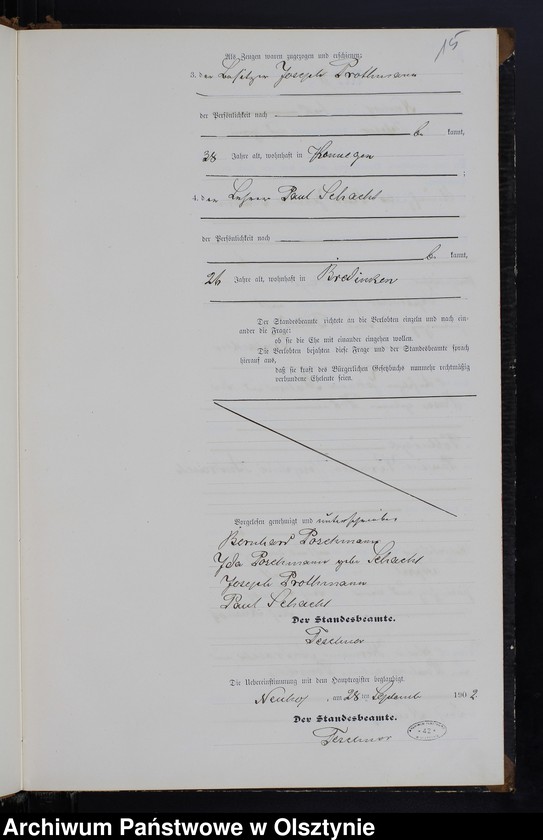 15
Als Zeugen waren zugezogen und erschienen:
3. der Besitzer Joseph Prothmann
der Persönlichkeit nach
be kannt,
38 Jahre alt, wohnhaft in Konnegen
4. der Lehrer Paul Schacht
der Persönlichkeit nach
be kannt,
26 Jahre alt, wohnhaft in Bredinken
Der Standesbeamte richtete an die Verlobten einzeln und nach ein-
ander die Frage:
ob sie die Ehe mit einander eingehen wollen.
Die Verlobten bejahten diese Frage und der Standesbeamte sprach
hierauf aus,
daß sie kraft des Bürgerlichen Gesetzbuchs nunmehr rechtmäßig
verbundene Eheleute seien.
Vorgelesen, genehmigt und unterschrieben
Bernhard Poschmann
Ida Poschmann geb. Schacht
Joseph Prothmann
Paul Schacht
Der Standesbeamte.
Teschner
Die Uebereinstimmung mit dem Hauptregister beglaubigt.
Neuhof, am 28 ten September 1902
Der Standesbeamte.
Teschner
42
Archiwum Państwowe w Olsztynie